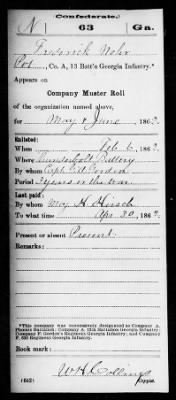 Confederate.
N 63 Ga.
Frederick Nohr
Co. A, 13 Batt'n Georgia Infantry.*
Appears on
Company Muster Roll
of the organization named above,
for May & June, 186
Enlisted:
When Feb 6, 186
Where Thunderbolt Battery
By whom Capt. Gordon
Period 3 years or the war
Last paid:
By whom Maj. H. Hirsch
To what time Apr. 30, 186
Present or absent Present
Remarks:
*This company was successively designated as Company A,
Phoenix Battalion; Company A, 13th Battalion Georgia Infantry;
Company F, Gordon's Regiment Georgia Infantry; and Company
F, 63d Regiment Georgia Infantry.
Book mark:
(642) W H Collings
Copyist.